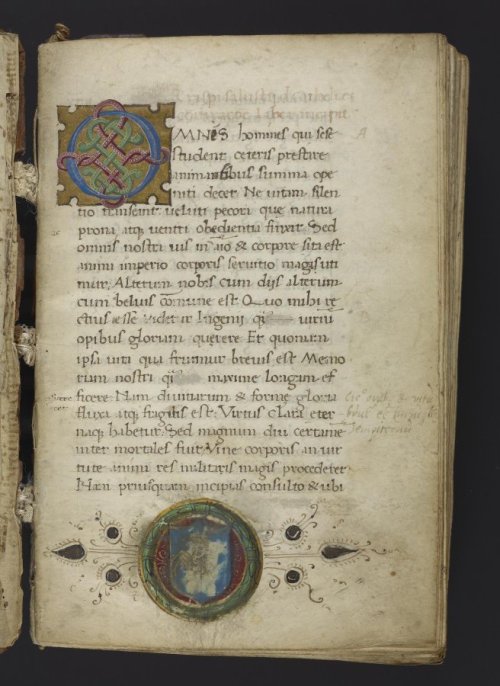 Crispi Salustii de
Liber incipit
OMNES homines qui sese
student ceteris prestare
animantibus summa ope
niti decet Ne uitam silen
tio transeant ueluti pecora que natura
prona atq uentri obedientia finxit Sed
omnis nostri uis in aio & corpore sita est
animi imperio corporis seruitio magis uti
mur, Alterum nobis cum dijs alterum
cum beluis comune est Quo mihi re
ctius esse uidetur Ingenij q uiriu
opibus gloriam querere Et quoniam
ipsa uita qua fruimur breuis est Memo
riam nostri q maxime longam ef
ficere Nam diuitiarum & forme gloria
fluxa atq fragilis est, Virtus clara eter
naq habetur, Sed magnum diu certame
inter mortales fuit Vine corporis an uir
tute animi res militaris magis procederet
Nam priusquam incipias consulto & ubi